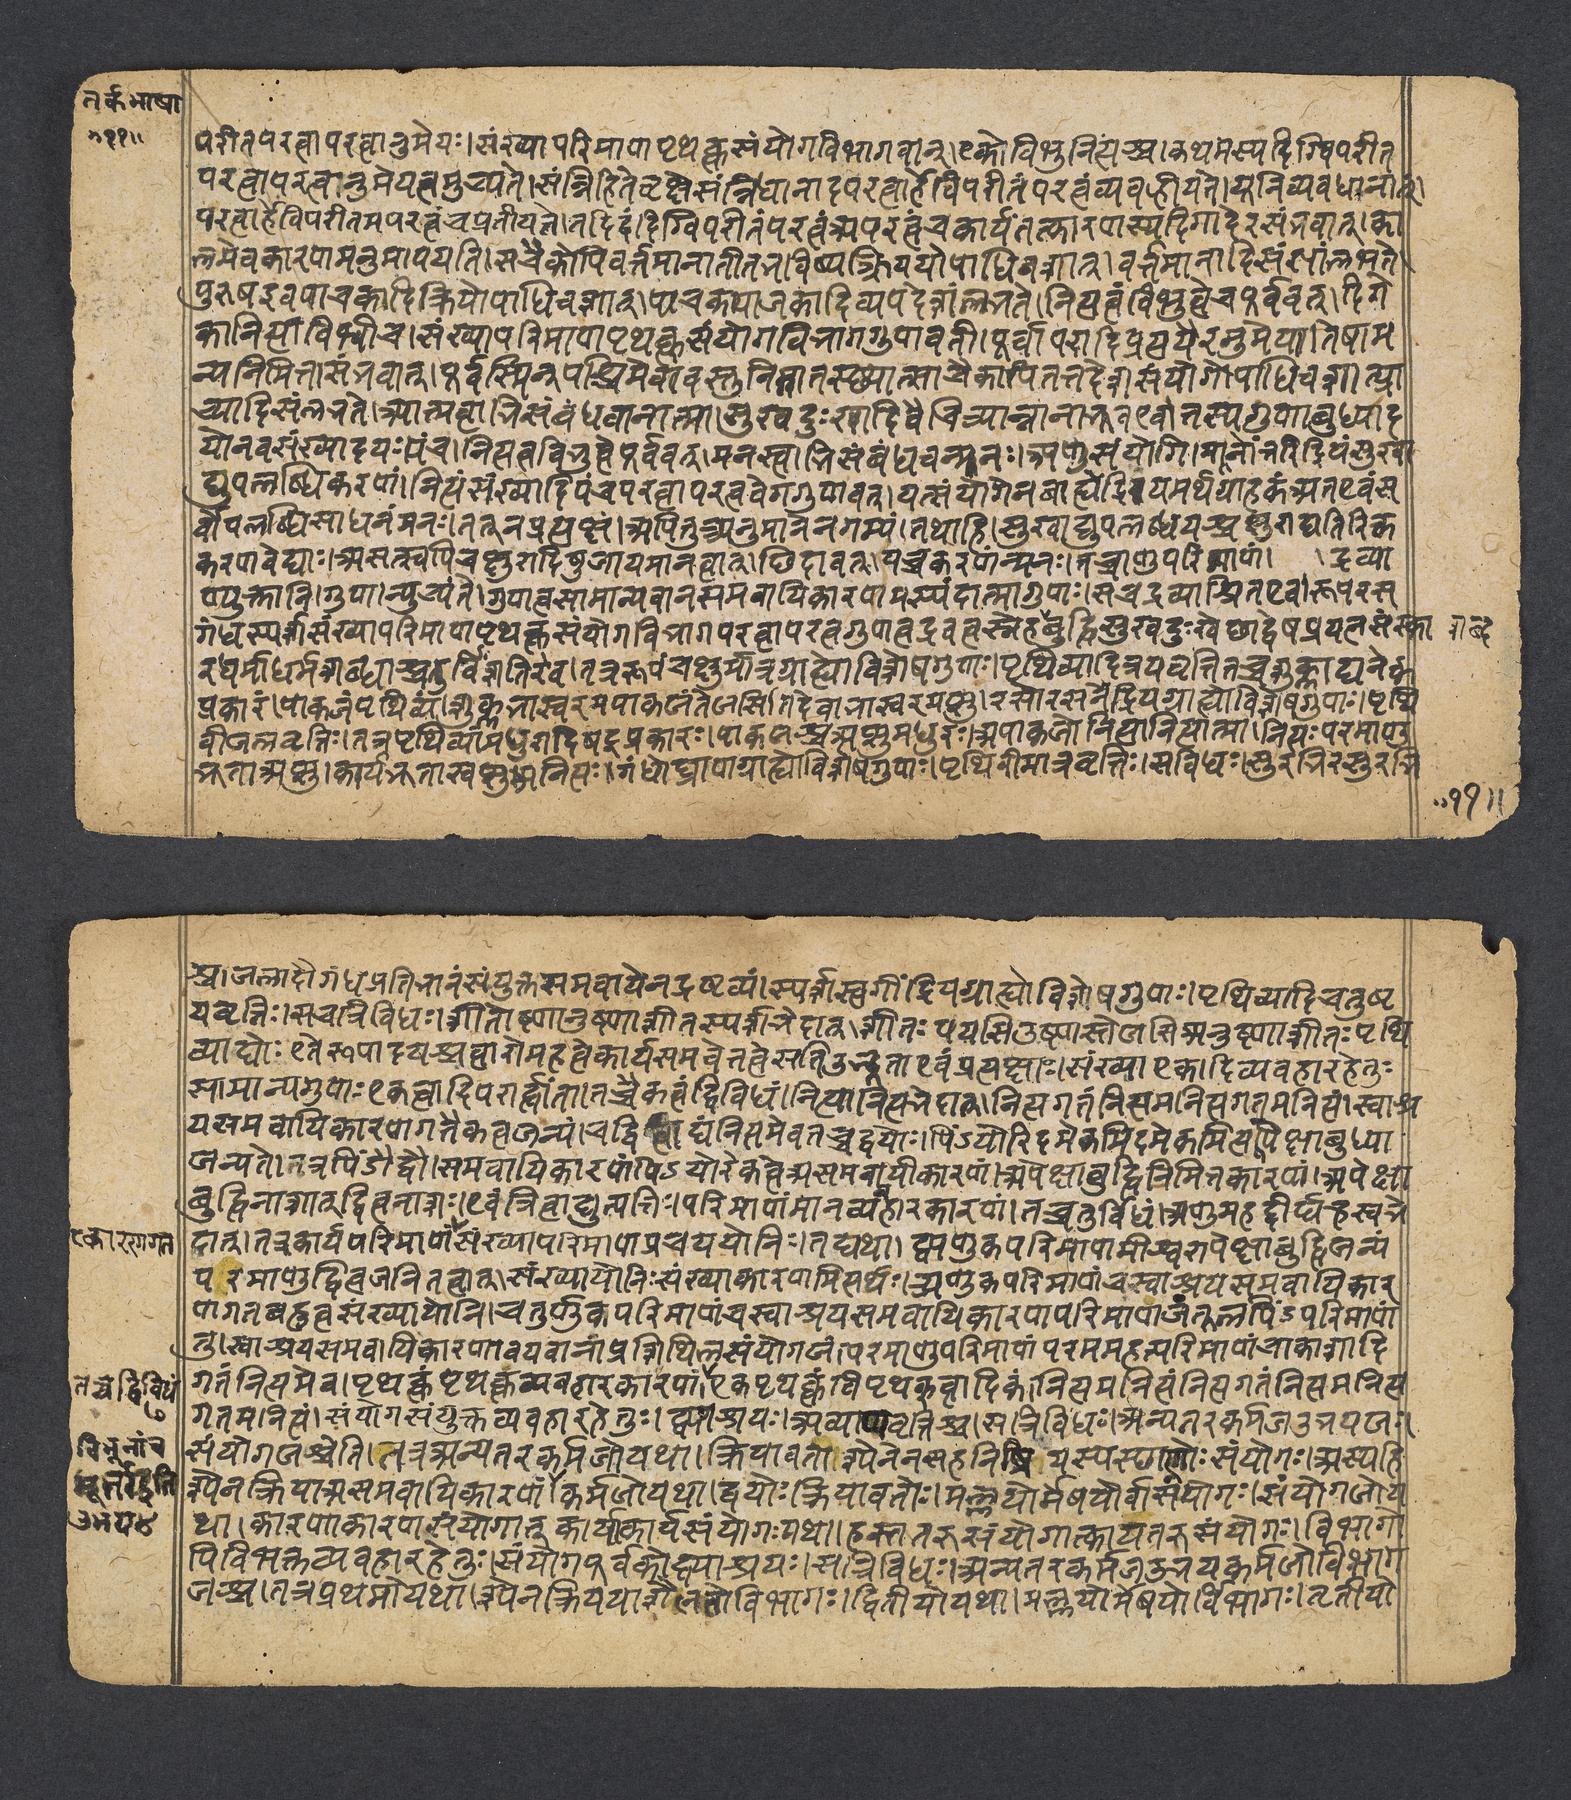 तर्कभाषा
॥११॥
परीतपरत्वापरत्वानुमेयः।संख्यापरिमाणपृथक्त्वसंयोगविभागवान्।एकोविभुर्नित्यश्च।कथमस्यदिग्विपरीत
परत्वापरत्वानुमेयत्वमुच्यते।संन्निहितेवृद्धेसंन्निधानादपरत्वार्हेविपरीतंपरत्वंव्यवह्रीयते।यूनिव्यवधानात्
परत्वार्हेविपरीतमपरत्वंचप्रतीयते।तदिदंदिग्विपरीतंपरत्वंअपरत्वंचकार्यंतत्कारणस्यदिगादेरसंभवात्।का
लमेवकारणमनुमापयति।सचैकोपिवर्त्तमानातीतभविष्यत्क्रिययोपाधिवशात्।वर्त्तमानादिसंज्ञांलभते
पुरुषइवपाचकादिक्रियोपाधिवशात्।पाचकपाठकादिव्यपदेशंलभते।नित्यत्वंविभुत्वंचपूर्ववत्।दिगे
कानित्याविभ्वीच।संख्यापरिमाणपृथक्त्वसंयोगविभागगुणवती।पूर्वापरादिप्रत्ययैरनुमेया।तेषाम
न्यनिमित्तासंभवात्।पूर्वस्मिन्पश्चिमेवावस्तुनि
च्यादिसंलभते।आत्मत्वाभिसंबंधवानात्मा।सुखदुःखादिवैचित्र्यान्नाना तस्यगुणाबुध्याद
योनवसंख्यादयःपंच।नित्यत्वविभुत्वेपूर्ववत्।मनस्त्वाभिसंबंधवन्मनः।अणुसंयोगि।
द्युपलब्धिकरणं।नित्यंसंख्यादिपंचपरत्वापरत्ववेगगुणवत्।यत्संयोगेनबाह्येंद्रियमर्थग्राहकंअतएवंस
र्वोपलब्धिसाधनंमनः।तत्तुनप्रत्यक्षं।अपितुअनुमानेनगम्यं।तथाहि।सुखाद्युपलब्धयश्चक्षुराद्यतिरिक्त
करणवेद्याः।असत्स्वपिचक्षुरादिषुजायमानत्वात्।छिदावत्।यच्चकरणंतन्मनः।तच्चाणुपरिमाणं। ।द्रव्या
ण्युक्तानि।गुणाउच्यंते।गुणत्वसामान्यवानसमवायिकारणमस्पंदात्मागुणः।सचद्रव्याश्रितएव।रूपरस
गंधस्पर्शसंख्यापरिमाणपृथक्त्वसंयोगविभागपरत्वापरत्वगुरुत्वद्रवत्वस्नेहबुद्धिसुखदुःखेछाद्वेषप्रयत्नसंस्का शब्द
रधर्माधर्म चतुर्विंशतिरेव।तत्ररूपंचक्षुर्मात्रग्राह्योविशेषगुणः।पृथिव्यादित्रयवृत्तितच्चशुक्लाद्यनेक
प्रकारं।पाकजंपृथिव्यां।शुक्लभास्वरमपाकजंतेजसितदेवाभास्वरमप्सु।रसोरसनेंद्रियग्राह्योविशेषगुणः।पृथि
वीजलवृत्तिः।तत्रपृथिव्यांमधुरादिषट्प्रकारः।पाकजश्चअप्सुमधुरः।अपाकजोनित्यानित्यात्मा।नित्यःपरमाणु
भूतासुअप्सु।कार्यभूतास्वप्सुअनित्यः।गंधोघ्राणग्राह्योविशेषगुणः।पृथिवीमात्रवृत्तिः।सद्विधः।सुरभिरसुरभि
॥११॥
श्च।जलादौगंधप्रतिभानंसंयुक्तसमवायेनद्रष्टव्यं।स्पर्शस्त्वगींद्रियग्राह्योविशेषगुणः।पृथिव्यादिचतुष्ट
यवृत्तिः।सचत्रिविधः।शीतोष्णानुष्णाशीतस्पर्शभेदात्।शीतःपयसिउष्णस्तेजसिअनुष्णाशीतःपृथि
व्याद्योः।एतेरूपादयश्चत्वारोमहत्वेकार्थसमवेतत्वेसतिउद्भूताएवंप्रत्यक्षाः।संख्याएकादिव्यवहारहेतुः
सामान्यगुणःएकत्वादिपरार्द्धांता।तत्रैकत्वंद्विविधं।नित्यानित्यभेदात्।नित्यगतंनित्यमनित्यगतमनित्यं।स्वाश्र
यसमवायिकारणगतैकत्वजन्यं।चद्वित्वाद्यंनित्यमेवतच्चद्वयोः।पिंडयोरिदमेकमिदमेकमित्यपेक्षाबुध्या
जन्यते।तत्रपिंडौद्वौ।समवायिकारणंपिंडयोरेकत्वेअसमवायीकारणं।अपेक्षाबुद्धिर्निमित्तकारणं।अपेक्षा
बुद्धिविनाशात्द्वित्वनाशः।एवंत्रित्वाद्युत्पत्तिः।परिमाणंमानव्यवहारकारणं।तच्चतुर्विधं।अणुमहद्दीर्घह्रस्वभे
दात्।तत्रकार्यपरिमाणंसंख्यापरिमाणप्रचययोनिः।तद्यथा।द्व्यणुकपरिमाणमीश्वरापेक्षाबुद्धिजन्यं
परमाणुद्वित्वजनितत्वात्।संख्यायोनिःसंख्याकारणमित्यर्थः।त्र्यणुकपरिमाणंचस्वाश्रयसमवायिकार
णगतबहुत्वसंख्यायोनि।चतुर्णुकपरिमाणंचस्वाश्रयसमवायिकारणपरिमाणजं।तूलपिंडपरिमाणं
तु।स्वाश्रयसमवायिकारणावयवानांप्रशिथिलसंयोगजं।परमाणुपरिमाणंपरममहत्परिमाणंचाकाशादि
गतंनित्यमेव।पृथक्त्वंपृथक्त्वव्यवहारकारणं।एकपृथक्त्वंद्विपृथक्त्वादिकं।नित्यमनित्यंनित्यगतंनित्यमनित्य
गतमनित्यं।संयोगसंयुक्तव्यवहारहेतुः।द्व्याश्रयः।अव्याप्यवृत्तिश्च।सत्रिविधः।अन्यतरकर्मजउभयजः।
संयोगजश्चेति।तत्रअन्यतरकर्मजोयथा।क्रियावताश्येनेनसहनिष्क्रियस्यस्थाणोःसंयोगः।अस्यहि
श्येनक्रियाअसमवायिकारणं।कर्मजोयथा।द्वयोःक्रियावतोः।मल्लयोर्मेषयोर्वासंयोगः।संयोगजोय
था।कारणाकारणसंयोगात्कार्याकार्यसंयोगःयथा।हस्ततरुसंयोगात्कायतरुसंयोगः।विभागो
पिविभक्तव्यवहारहेतुः।संयोगपूर्वकोद्व्याश्रयः।सत्रिविधः।अन्यतरकर्मजउभयकर्मजोविभाग
जश्च।तत्रप्रथमोयथा।श्येनक्रिययाशैलयोर्विभागः।द्वितीयोयथा।मल्लयोर्मेषयोर्विभागः।तृतीयो
तच्चद्विविधं